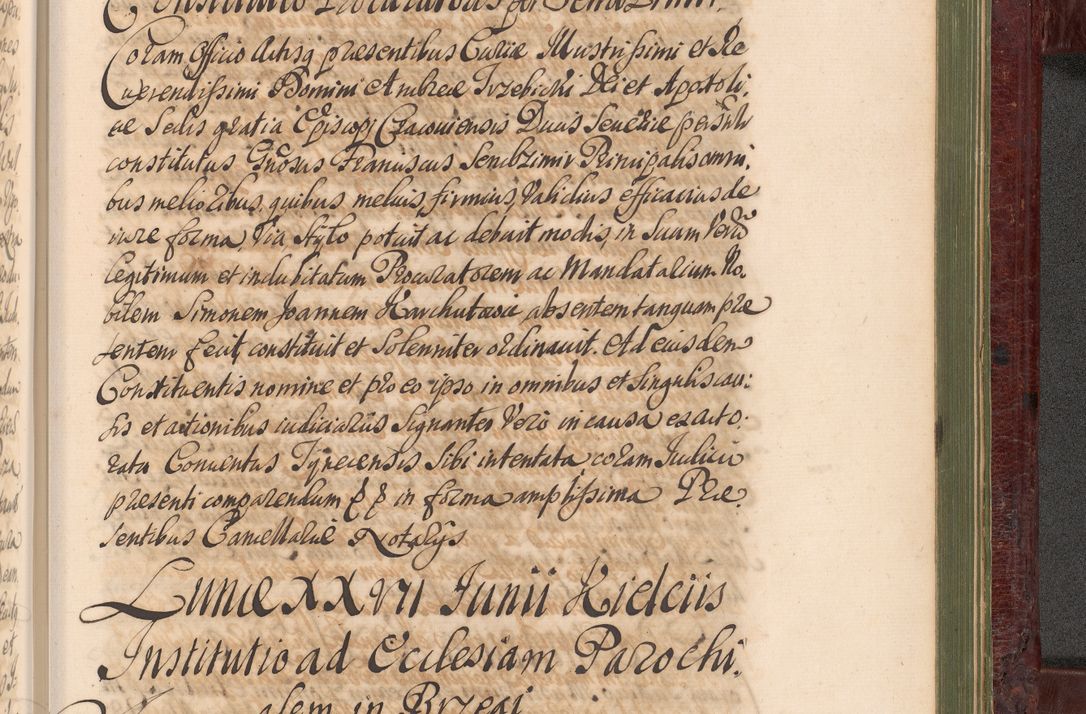 Constitutio Procuratoris per
Coram Officio Actisq presentibus Curiæ Illustrissimi et Re
verendissimi Domini Andreæ Trzebicki Dei et Apostoli
cæ Sedis gratia Episcopi Cracouiensis Ducis Seueriæ person
constitutus Gnosus Franciscus Sendzimir Principalis omni:
bus melioribus, quibus melius, firmius, Validius efficacius de
iure forma, Via stylo potuit ac debuit modis, in Suam Verũ
legitimum et indubitatum Procuratorem ac Mandatarium No.
bilem Simonem Joannem Karchutowic absentem tanquam præ
sentem fecit constituit et solenniter ordinauit. Ad eiusdem
Constituentis nomine et pro eo ipso in omnibus et singulis cau:
sis et actionibus iudiciariis signanter Vero in causa exacto.
rata Conuentus Tynecensis sibi intentata coram Iudicio
presenti comparendum & & in forma amplissima Præ
sentibus Cancellariæ Notarijs
Lunæ XXVII Junii Kielciis
Institutio ad Ecclesiam Parochi.
alem in Brzegi